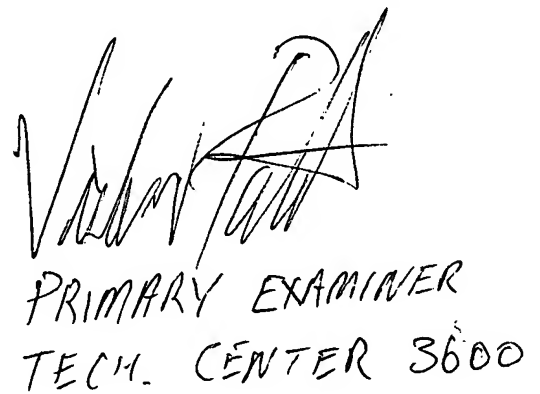 PRIMARY EXAMINER
TECH. CENTER 3600